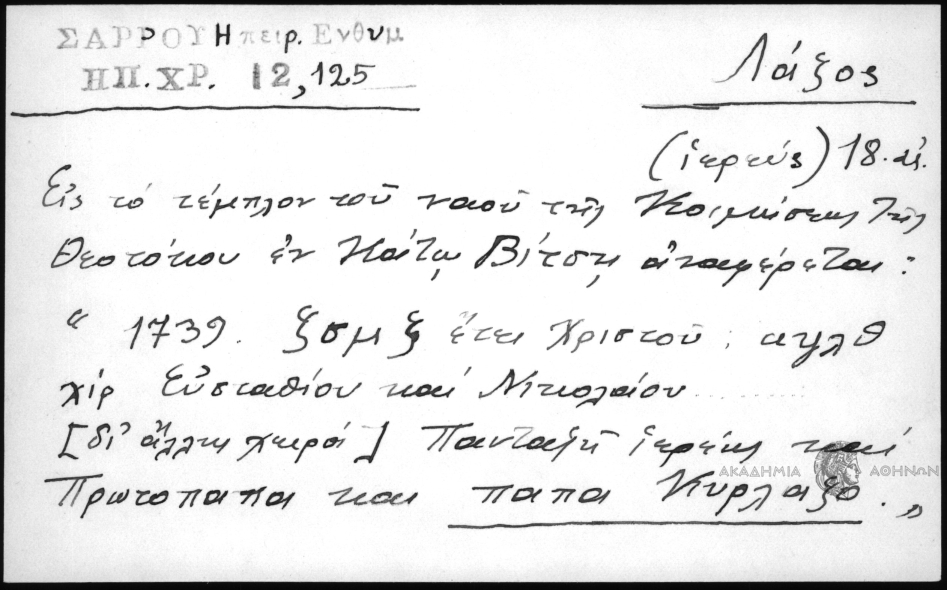 ΣΑΡΡΟΥ Ηπειρ. Ενθυμ
ΗΠ. ΧΡ. 12, 125
Λάζος
(ἱερεύς) 18. αἰ.
Εἰς τό τέμπλον τοῦ ναοῦ τῆς Κοιμήσεως τῆς
Θεοτόκου ἐν Κάτω Βίτσῃ ἀναφέρεται:
“ 1739. ξσμξ ἔτει Χριστοῦ : αψλθ
χίρ Εὐσταθίου καί Νικολάου ..........
[δι' ἄλλης χειρό] Πανταζῆ ἱερέως καί
Πρωτοπαπα και παπα Κυρλαζο . „
ΑΚΑΔΗΜΙΑ ΑΘΗΝΩΝ